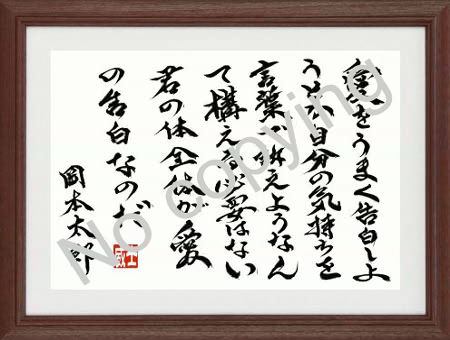 愛をうまく告白しよ
うとか自分の気持ちを
言葉で訴えようなん
て構える必要はない
君の体全体が愛
の告白なのだ
岡本太郎
No copying